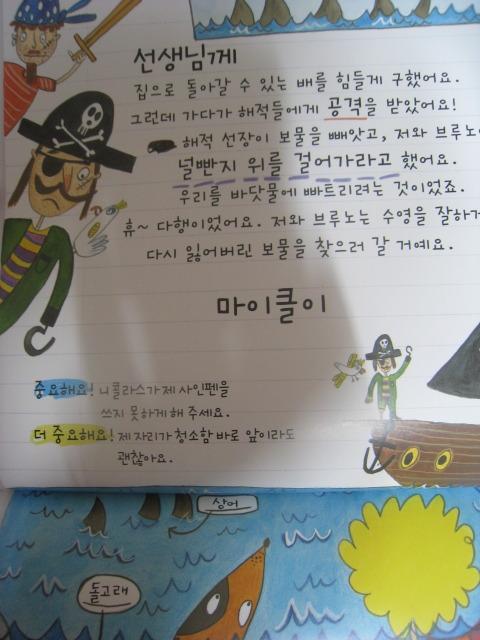 선생님께
집으로 돌아갈 수 있는 배를 힘들게 구했어요.
그런데 가다가 해적들에게 공격을 받았어요!
해적 선장이 보물을 빼앗고, 저와 브루노
널빤지 위를 걸어가라고 했어요.
우리를 바닷물에 빠트리려는 것이었죠.
휴~ 다행이었어요. 저와 브루노는 수영을 잘하거
다시 잃어버린 보물을 찾으러 갈 거예요.
마이클이
중요해요! 니콜라스가 제 사인펜을
쓰지 못하게 해 주세요.
더 중요해요! 제 자리가 청소함 바로 앞이라도
괜찮아요.
상어
돌고래